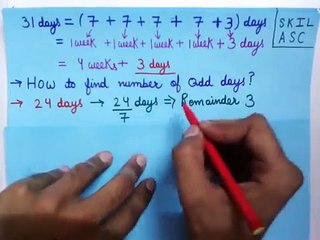 31 days = (7 + 7 + 7 + 7 + 3) days
= 1week + 1week + 1week + 1week + 3 days
= 4 weeks + 3 days
→ How to find number of Odd days?
→ 24 days → 24 days ⇒ Remainder 3
7
SKIL
ASC